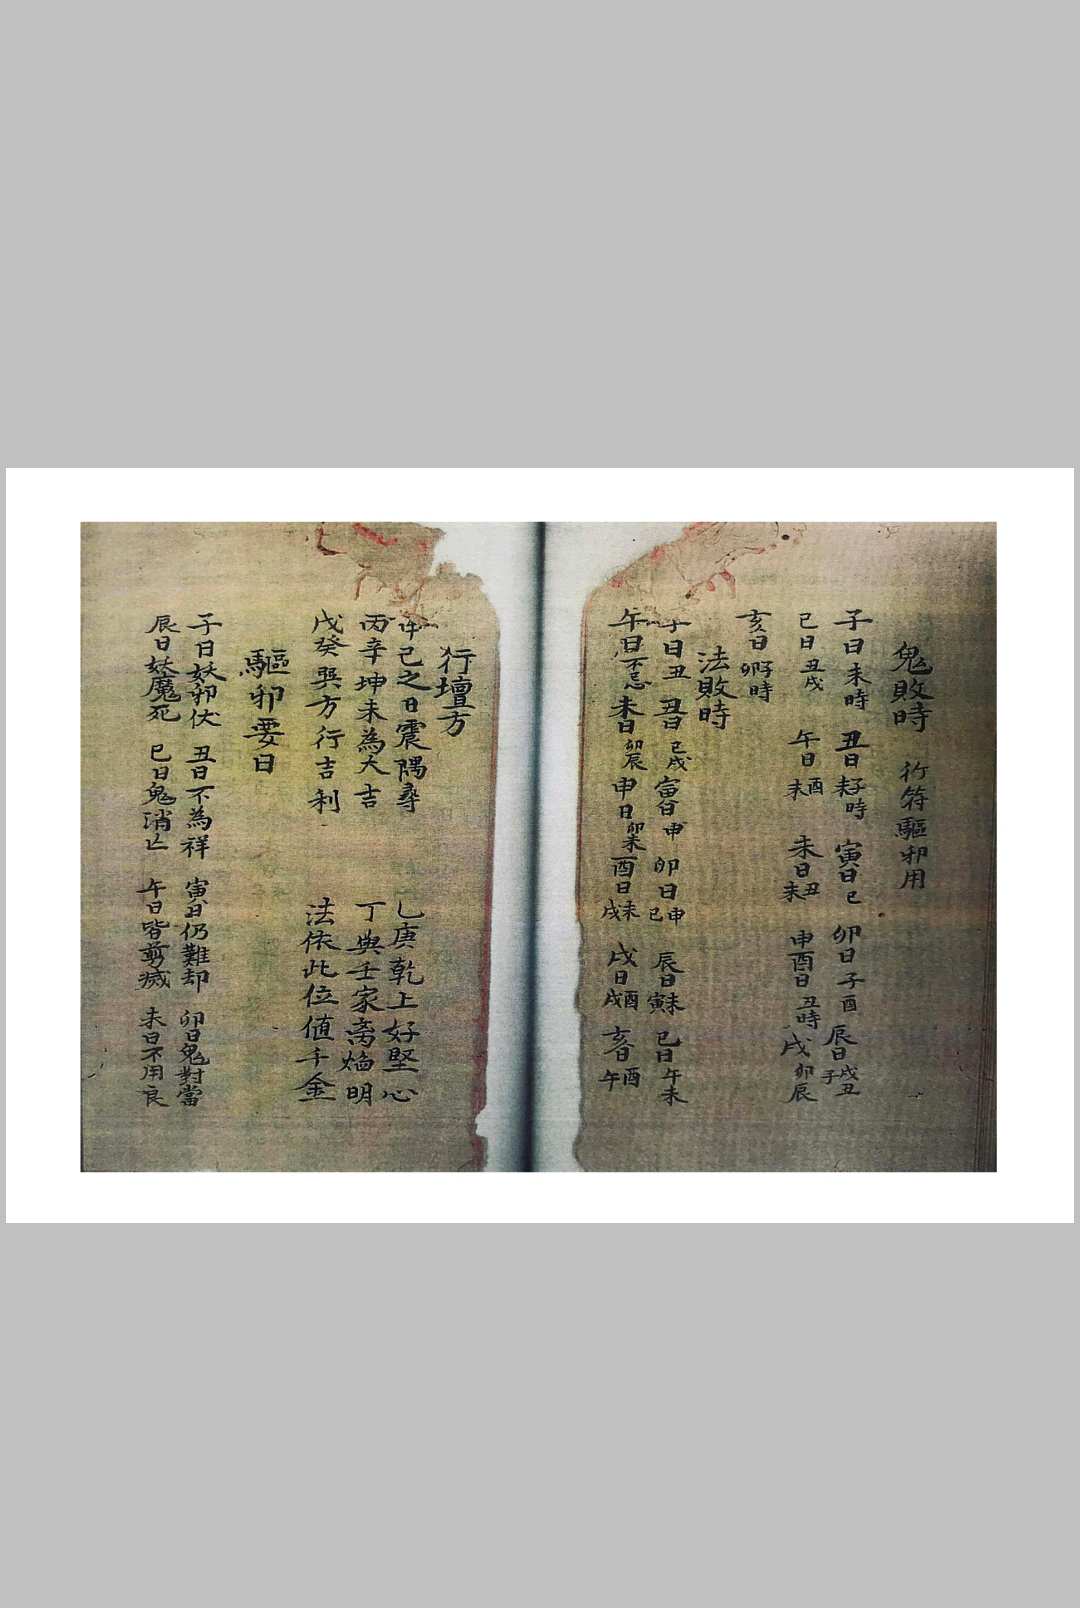 鬼敗時 行符驅邪用
子日未時 丑日子時 寅日巳 卯日子酉 辰日戌丑子
巳日丑戌 午日酉未 未日丑未 申酉日丑時 戌卯辰
亥日卯子時
法敗時
子日丑 丑日巳戌 寅日申 卯日申巳 辰日未寅 巳日午未
午日不忌 未日卯辰 申日卯未 酉日未戌 戌日酉戌 亥日酉午
行壇方
己之日震隅尋 乙庚乾上好堅心
丙辛坤未為大吉 丁與壬家离焔明
戊癸巽方行吉利 法依此位值千金
驅邪要日
子日妖邪伏 丑日不為祥 寅日仍難却 卯日鬼對當
辰日妖魔死 巳日鬼消亡 午日皆剪滅 未日不用良